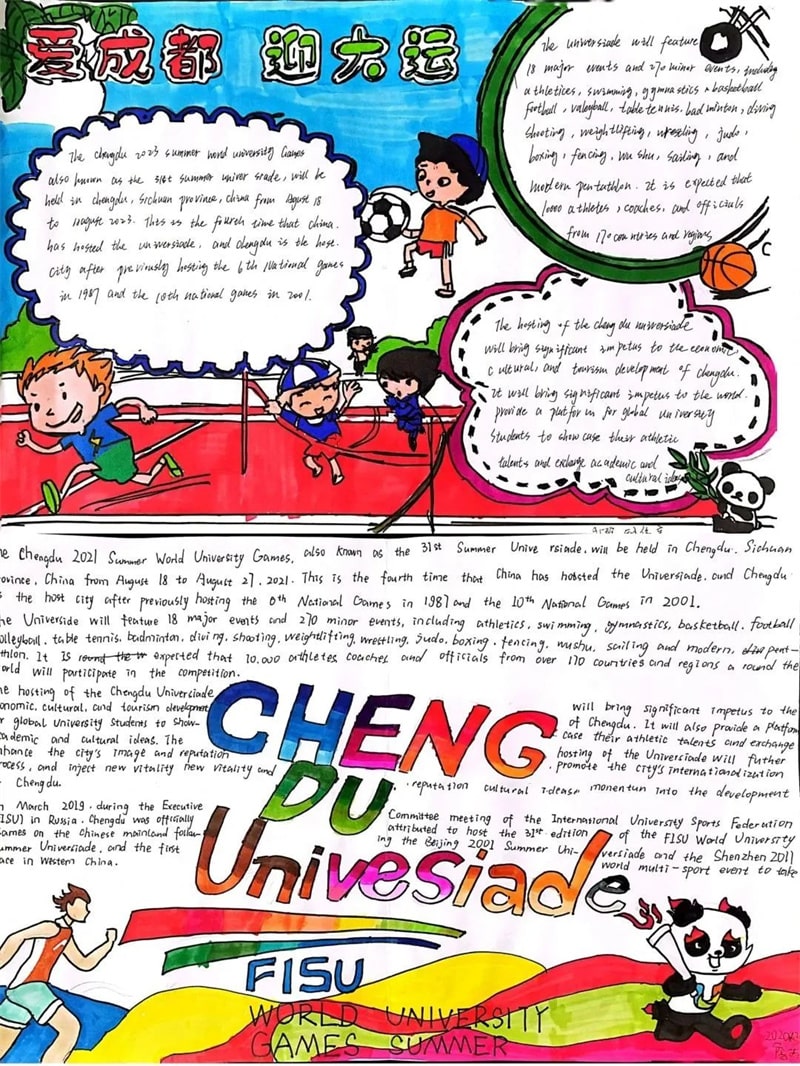 爱成都 迎大运
The chengdu 2023 summer world university Games
also known as the 31st summer univer srade, will be
held in chengdu, sichuan province, china from August 18
to 10august 2023. This is the fourth time that china.
has hosted the universiade, and chengdu is the host.
city after previously hosting the 6th National games
in 1987 and the 10th national games in 2001.
The universiade will feature
18 major events and 270 minor events, including
athletices, swimming, gymnastics, basketball
football, valleyball, table tennis. bad minton, diving
shooting, weightlifting, wresling, judo,
boxing, fencing, wu shu, sailing, and
mordern pentathlon. It is expected that
1000 athletes, coaches, and officials
from 170 countries and regions
The hosting of the cheng du universiade
will bring significant impetus to the economic,
cultural, and tourism development of chengdu.
It will bring significant impetus to the world.
provide a platform for global university
students to show case their athletic
talents and exchange academic and
cultural ideas
he Chengdu 2021 Summer World University Games, also known as the 31st Summer Unive rsiade, will be held in Chengdu. Sichuan
ovince, China from August 18 to August 27, 2021. This is the fourth time that China has hobsted the Universiade, and Chengdu
s the host city after previously hosting the 6th National Games in 1987 and the 10th National Games in 2001.
he Universide will feature 18 major events and 270 minor events, including athletics, swimming, gymnastics, basketball. football
olleyball, table tennis, badminton, diving, shooting, weightlifting, wrestling, Judo, boxing, fencing, wushu, sailing and modern, pent-
thlon. It Is expected that 10.000 athletes coaches and officials from over 170 countries and regions a round the
orld will participate in the competition.
he hosting of the Chengdu Univerciade will bring significant impetus to the
onomic, cultural, and tourism development of Chengdu. It will also provide a Platform
r global University Students to show- case their athletic talents and exchange
ademic and cultural ideas. The hosting of the Universiade will futher
nhance the city's image and reputation promote the city's internationalization
rocess, and inject new vitality new vitality and reputation cultural ideas momentun into the development
Chengdu.
n March 2019, during the Executive Committee meeting of the International University Sports Federation
ISU) in Russia. Chengdu was officially attributed to host the 31st edition of the FISU World University
ames on the Chinese mainland follow- ing the Beijing 2001 Summer Uni- versiade and the Shenzhen 2011
ummer Universiade, and the first world multi-sport event to take
ace in Western China.
CHENG
DU
Univesiade
FISU
WORLD UNIVERSITY
GAMES SUMMER